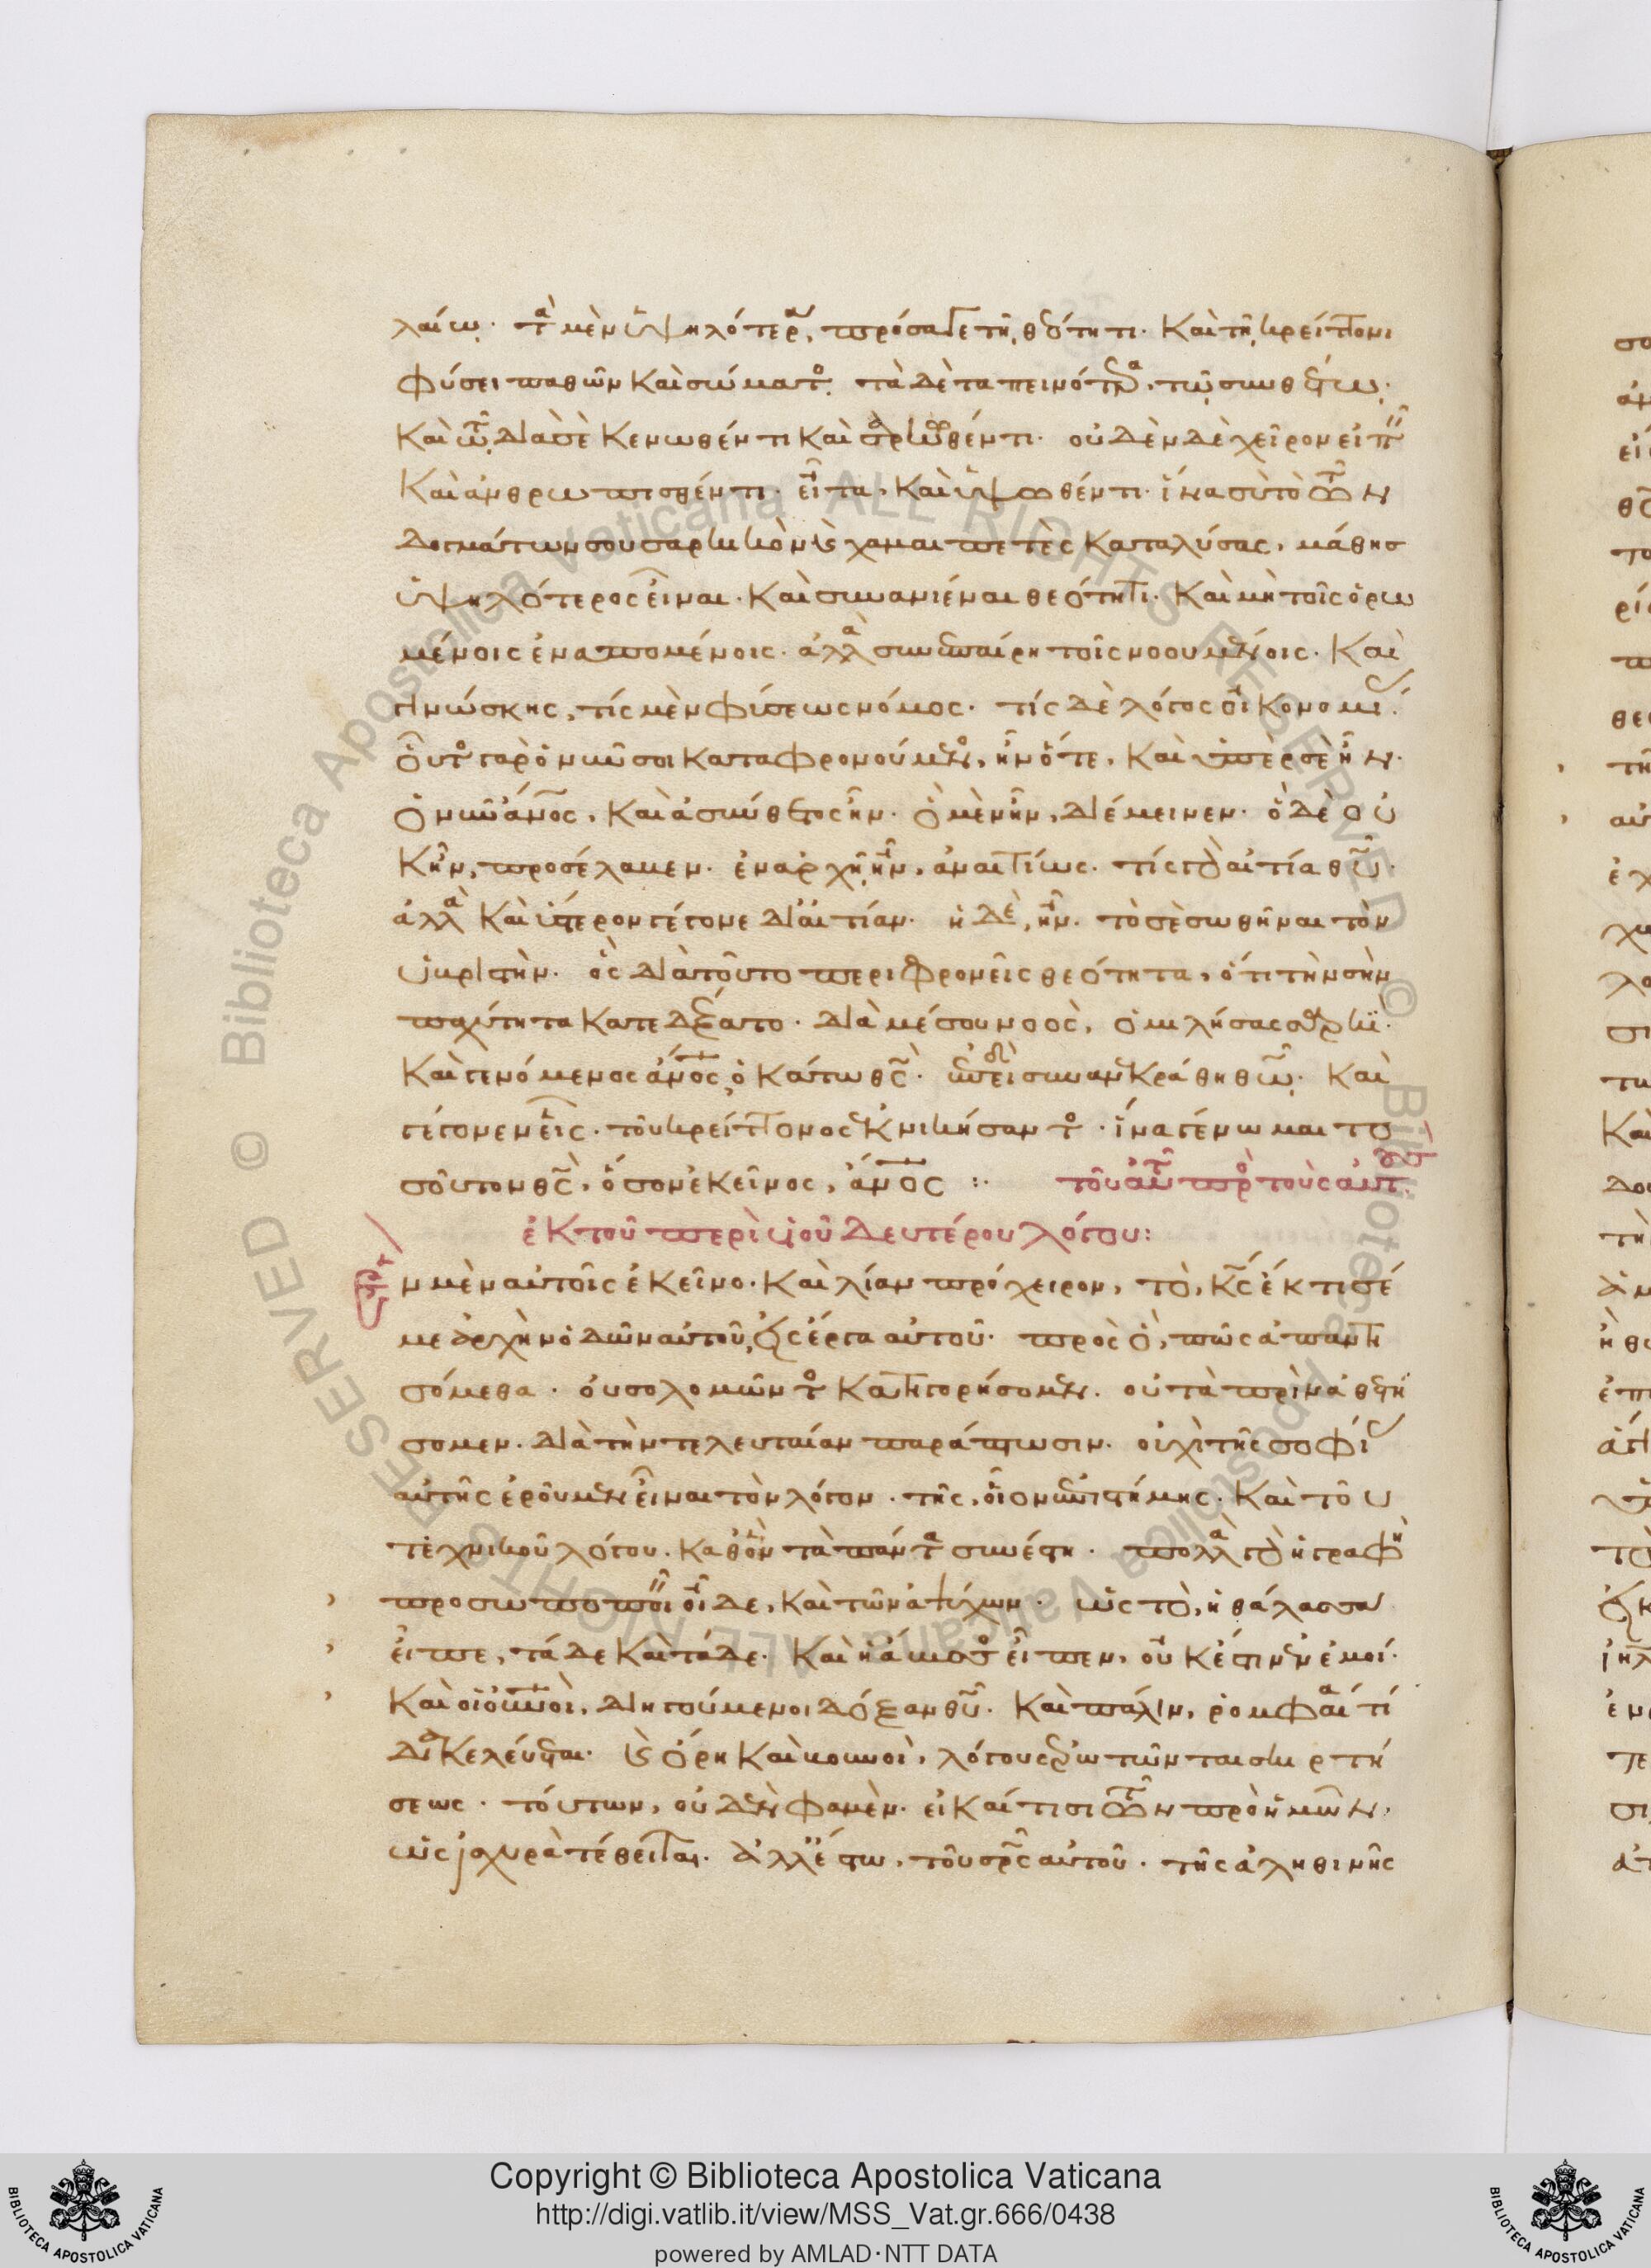 λαίω. τὰ μὲν ὑψηλότερα, πρόσαγε τῆ θεότητι. Καὶ τῆ κρείττονι
φύσει παθῶν Καὶ σώματος. τὰ δὲ ταπεινότερα, τῶ συνθέτω.
Καὶ τῶ διασὲ Κενωθέντι Καὶ σαρκωθέντι. οὐδὲν δὲ χεῖρον εἰπεῖν
Καὶ ἀνθρωπισθέντι. εἶτα, Καὶ ὑψωθέντι. ἵνα σὺ τὸ τῶν
δογμάτων σου σαρκικὸν καὶ χαμαιπετὲς Καταλύσας, μάθης
ὑψηλότερος εἶναι. Καὶ συνανιέναι θεότητι. Καὶ μὴ τοῖς ὁρω
μένοις ἐναπομένοις. ἀλλὰ συνεπαίρη τοῖς νοουμένοις. Καὶ
γινώσκης, τίς μὲν φύσεως νόμος. τίς δὲ λόγος οἰκονομίας.
Οὗτος γὰρ ὁ νῦν σοι Καταφρονούμενος, ἦν ὅτε, Καὶ ὑπὲρ σὲ ἦν.
Ὁ νῦν ἄνος, Καὶ ἀσύνθετος ἦν. ὃ μὲν ἦν, διέμεινεν. ὃ δὲ οὐ
Κ ἦν, προσέλαβεν. ἐν ἀρχῆ ἦν, ἀναιτίως. τίς γὰρ αἰτία θῦ.
ἀλλὰ Καὶ ὕστερον γέγονε δι' αἰτίαν. ἡ δὲ, ἦν. τὸ σὲ σωθῆναι τὸν
ὑβριστὴν. ὃς διὰ τοῦτο περιφρονεῖς θεότητα, ὅτι τὴν σὴν
παχύτητα Κατεδέξατο. διὰ μέσου νοὸς, ὁμιλήσας σαρκί.
Καὶ γενόμενος ἄνος, ὁ Κάτω θς. ἐπεὶ συνανεκράθη θῶ. Καὶ
γέγονεν εἷς. τοῦ κρείττονος ἐκνικήσαντος. ἵνα γένωμαι το
σοῦτον θς, ὅσον ἐκεῖνος, ἄνος :. τοῦ αὐτοῦ πρὸς τοὺς αὐτούς.
ἐκ τοῦ περὶ υἱοῦ δευτέρου λόγου:
ν μὲν αὐτοῖς ἐκεῖνο. Καὶ λίαν πρόχειρον, τὸ, κς ἔκτισέ
με ἀρχὴν ὁδῶν αὐτοῦ, εἰς ἔργα αὐτοῦ. πρὸς ὃ, πῶς ἀπαντη
σόμεθα. οὐ σολομῶντος Κατηγορήσομεν. οὐ τὰ πρὶν ἀθετή
σομεν. διὰ τὴν τελευταίαν παράπτωσιν. οὐχὶ τῆς σοφίας
αὐτῆς ἐροῦμεν εἶναι τὸν λόγον. τῆς, οἷον ἐπιστήμης. Καὶ τοῦ
τεχνικοῦ λόγου. Καθ' ὃν τὰ πάντα συνέστη. πολλὰ γὰρ ἡ γραφὴ
προσωποποιεῖν οἶδε, Καὶ τῶν ἀψύχων. ὡς τὸ, ἡ θάλασσα
εἶπε, τάδε Καὶ τάδε. Καὶ ἡ ἄβυσσος εἶπεν, οὐκ ἔστιν ἐν ἐμοί.
Καὶ οἱ οὐνοὶ, διηγούμενοι δόξαν θῦ. Καὶ πάλιν, ρομφαία τί
διακελεύεται. καὶ ὄρη Καὶ βουνοὶ, λόγους ἐρωτῶνται σκιρτή
σεως. τούτων, οὐδὲν φαμὲν. εἰ Καί τισι τῶν πρὸ ἡμῶν,
ὡς ἰσχυρὰ τέθειται. ἀλλ' ἔστω, τοῦ σρς αὐτοῦ. τῆς ἀληθινῆς
Copyright © Biblioteca Apostolica Vaticana
http://digi.vatlib.it/view/MSS_Vat.gr.666/0438
powered by AMLAD·NTT DATA